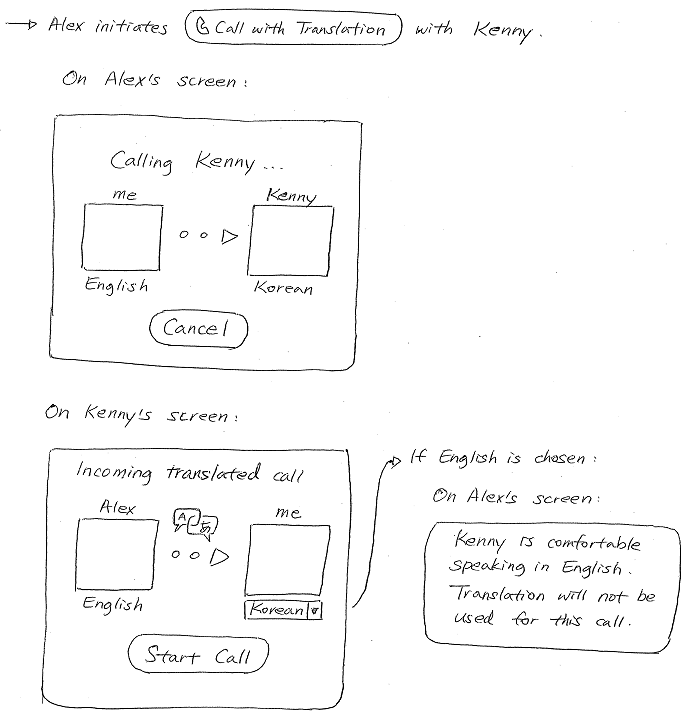 Alex initiates Call with Translation with Kenny.
On Alex's screen:
Calling Kenny...
me
Kenny
English
Korean
Cancel
On Kenny's screen:
Incoming translated call
Alex
A
あ
me
English
Korean
Start Call
If English is chosen:
On Alex's screen:
Kenny is comfortable
speaking in English.
Translation will not be
used for this call.